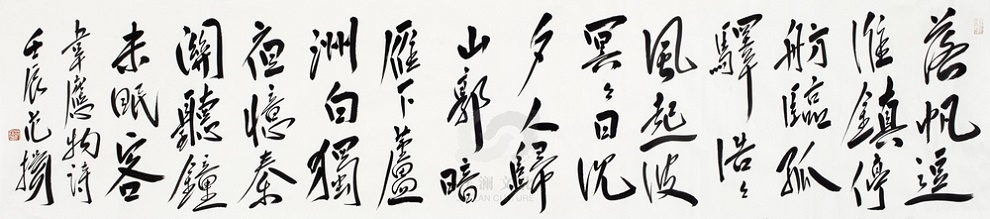 落帆逗
淮鎮停
舫臨孤
驛浩々
風起波
冥々日沉
夕人歸
山郭暗
雁下蘆
洲白獨
夜憶秦
關聽鐘
未眠客
韋應物詩
壬辰范